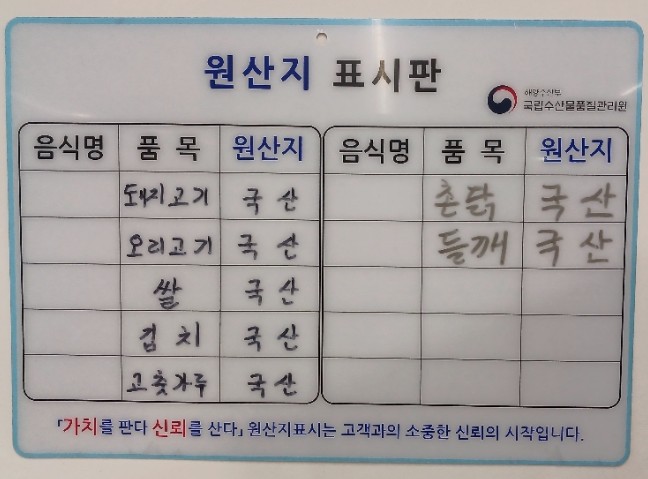 원산지 표시판
해양수산부
국립수산물품질관리원
음식명 품 목 원산지
돼지고기 국 산
오리고기 국 산
쌀 국 산
김 치 국 산
고춧가루 국 산
음식명 품 목 원산지
촌닭 국 산
들깨 국 산
「가치를 판다 신뢰를 산다」 원산지표시는 고객과의 소중한 신뢰의 시작입니다.